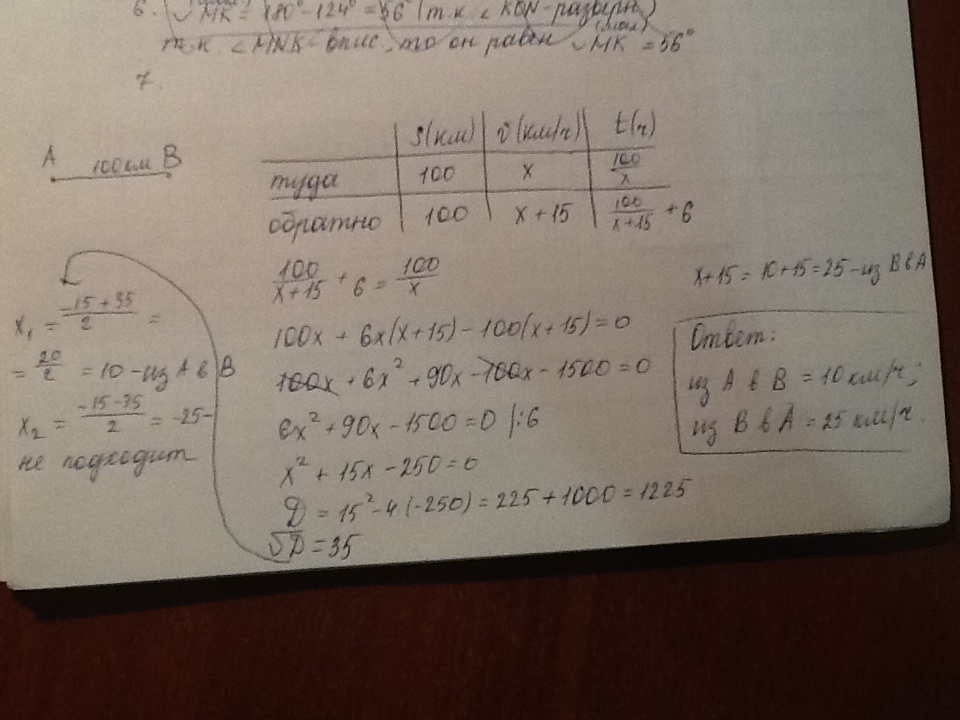 6. ◡MK = 180° - 124° = 56° (т.к. ∠KON - разверн.)
т.к. ∠MNK - впис., то он равен ◡MK = 56°
7.
A 100км B
S(км) v(км/ч) t(ч)
туда 100 x 100/x
обратно 100 x+15 100/(x+15) + 6
100/(x+15) + 6 = 100/x
100x + 6x(x+15) - 100(x+15) = 0
100x + 6x² + 90x - 100x - 1500 = 0
6x² + 90x - 1500 = 0 |:6
x² + 15x - 250 = 0
D = 15² - 4(-250) = 225 + 1000 = 1225
√D = 35
x₁ = (-15+35)/2 =
= 20/2 = 10 - из A в B
x₂ = (-15-35)/2 = -25 -
не подходит
x+15 = 10+15 = 25 - из B в A
Ответ:
из A в B = 10 км/ч;
из B в A = 25 км/ч.